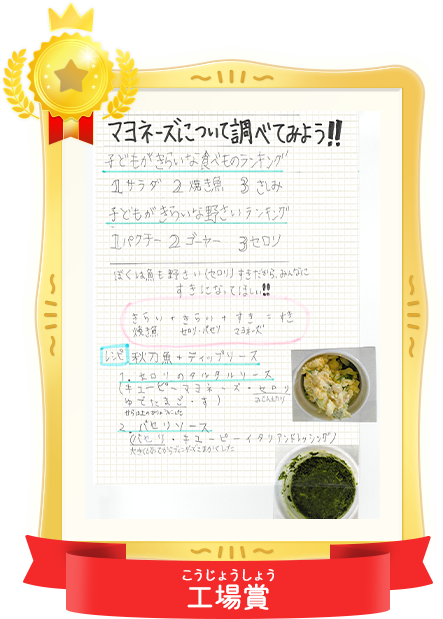 マヨネーズについて調べてみよう!!
子どもがきらいな食べものランキング
1サラダ 2焼き魚 3さしみ
子どもがきらいな野さいランキング
1パクチー 2ゴーヤー 3セロリ
ぼくは魚も野さい(セロリ)すきだから、みんなに
すきになってほしい!!
きらい + きらい + すき = すき
焼き魚 セロリ・パセリ マヨネーズ
レシピ 秋刀魚+ディップソース
1. セロリのタルタルソース
(キューピーマヨネーズ・セロリ
ゆでたまご・す)
2. パセリソース
(パセリ・キューピーイタリアンドレッシング)
こうじょうしょう
工場賞